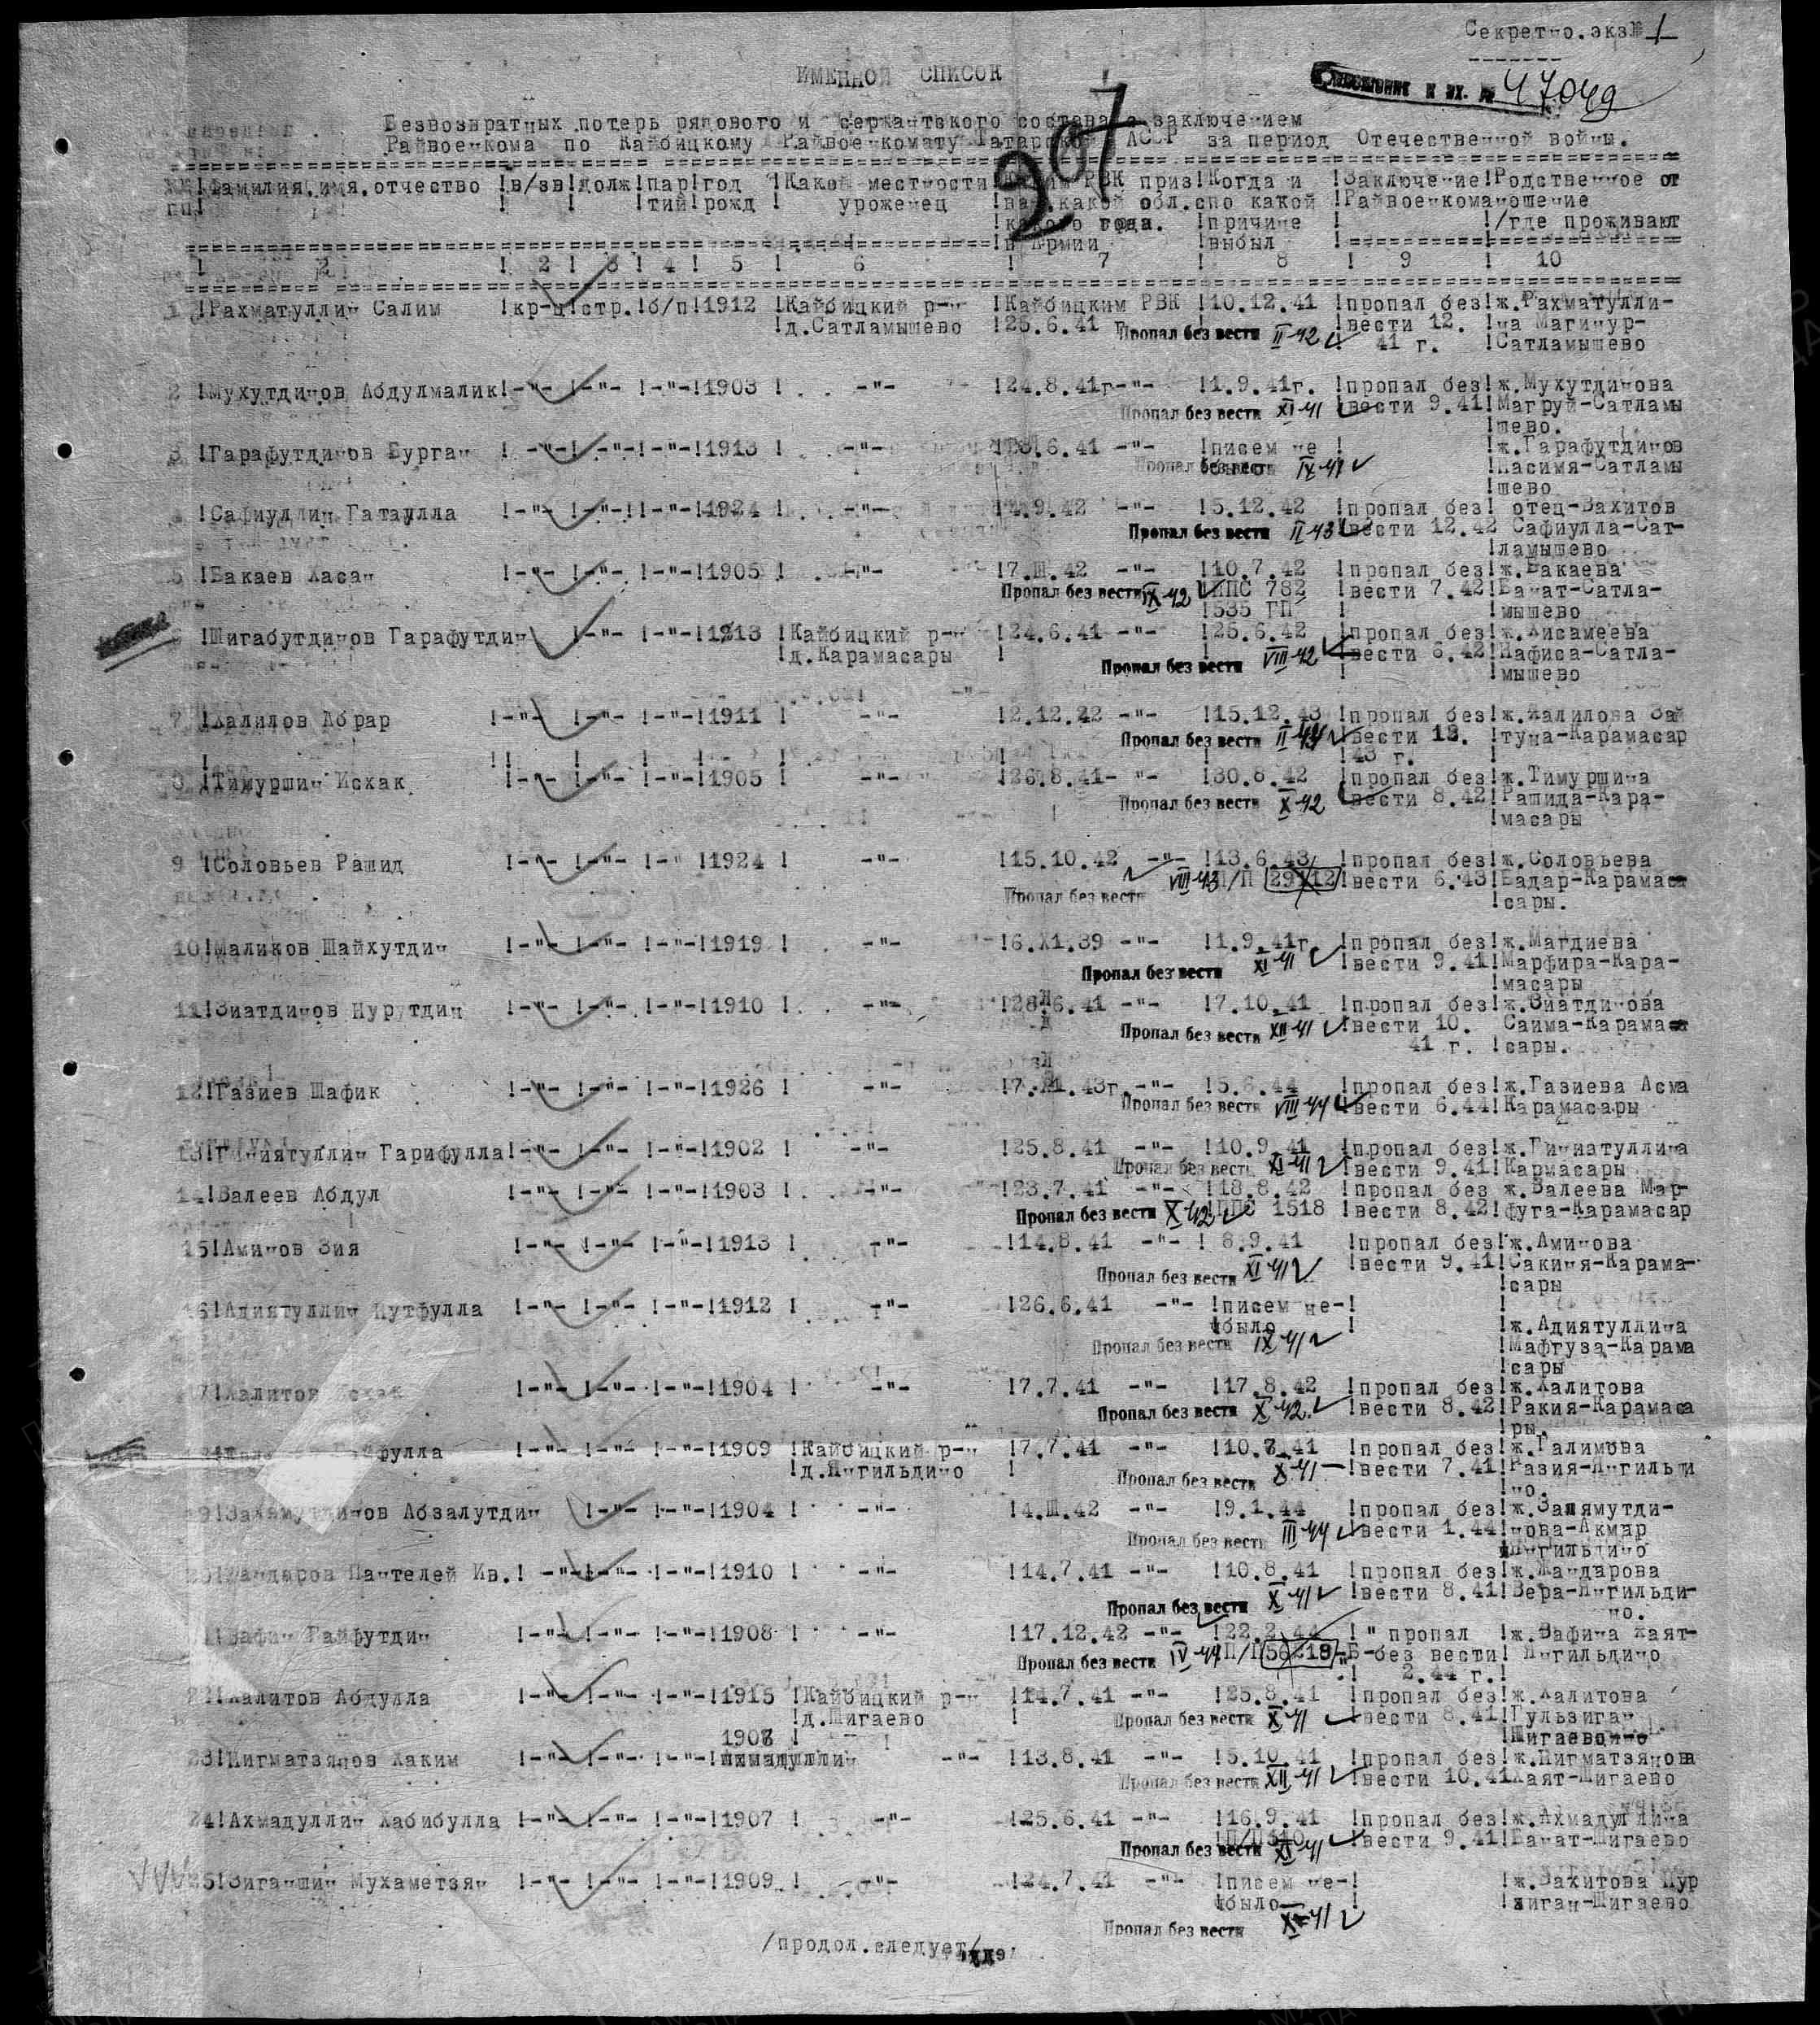 Секретно.экз№ 1
ИМЕННОЙ СПИСОК
к вх. № 47049
207
Безвозвратных потерь рядового и сержантского состава с заключением
Райвоенкома по Кайбицкому Райвоенкомату Татарской АССР за период Отечественной войны.
!Фамилия.имя.отчество !в/зв!долж!пар!год !Какой местности !Каким РВК приз!Когда и !Заключение!Родственное от
пп! ! ! !тий!рожд ! уроженец !ван.какой обл.!по какой !Райвоенкома!ношение
!какого года. !причине ! !/где проживают
!в Армии !выбыл ! !
! 2 ! 2 ! 3 ! 4 ! 5 ! 6 ! 7 ! 8 ! 9 ! 10
1 !Рахматуллин Салим !кр-ц!стр.!б/п!1912 !Кайбицкий р-н !Кайбицким РВК !10.12.41 !пропал без!ж.Рахматулли-
!д.Сатламышево !25.6.41 Пропал без вести II-42 !вести 12. !на Магинур-
41 г. !Сатламышево
2 !Мухутдинов Абдулмалик!-"- !-"- !-"-!1903 ! -"- !24.8.41г-"- !1.9.41г. !пропал без!ж.Мухутдинова
Пропал без вести XI-41 !вести 9.41!Магруй-Сатламы
!шево.
3 !Гарафутдинов Бурган ! -"- ! -"-!-"-!1913 ! -"- 6.41 -"- !писем не ! !ж.Гарафутдинов
Пропал без вести IX-41 !Насимя-Сатламы
!шево
4 !Сафиуллин Гатаулла !-"- !-"-!!-"-!1924 ! -"- 9.42 -"- !5.12.42 !пропал без! отец-Вахитов
Пропал без вести II-43 вести 12.42 Сафиулла-Сат-
!ламышево
5 !Бакаев Хасан !-"- !-"- !-"-!1905 ! -"- !7.Ш.42 -"- !10.7.42 !пропал без!ж.Бакаева
Пропал без вести IX-42 !ППС 782 !вести 7.42!Банат-Сатла-
!535 ГП ! !мышево
6 !Шигабутдинов Гарафутдин !-"- !-"-!1913 !Кайбицкий р-н !24.6.41 -"- !25.6.42 !пропал без!ж.Хисамеева
!д.Карамасары ! Пропал без вести VIII-42 !вести 6.42!Нафиса-Сатла-
!мышево
7 !Халилов Абрар !-"- !-"- !-"-!1911 ! -"- !2.12.42 -"- !15.12.43 !пропал без!ж.Халилова Зай
Пропал без вести II-44 !вести 12. !туна-Карамасар
!43 г. !
8 !Тимуршин Исхак !-"- !-"- !-"-!1905 ! -"- !26.8.41- "- !30.8.42 !пропал без!ж.Тимуршина
Пропал без вести X-42 !вести 8.42!Рашида-Кара-
!масары
9 !Соловьев Рашид !-"- !-"- !-" !1924 ! -"- !15.10.42 -"- !13.6.43 !пропал без!ж.Соловьева
Пропал без вести VIII-43 П/П 29112 !вести 6.43!Бадар-Карамаса
!сары.
10!Маликов Шайхутдин !-"- !-"- !-"-!1919 ! -"- !6.Х1.39 -"- !1.9.41г. !пропал без!ж.Магдиева
Пропал без вести XI-41 !вести 9.41!Марфира-Кара-
!масары
11!Зиатдинов Нурутдин !-"- !-"- !-"-!1910 ! -"- !28.6.41 -"- !7.10.41 !пропал без!ж.Зиатдинова
Пропал без вести XII-41 !вести 10. Саима-Карама
41 г. !сары.
12!Газиев Шафик !-"- !-"- !-"-!1926 ! -"- !7.Х1.43г.-"- !5.6.44 !пропал без!ж.Газиева Асма
Пропал без вести VIII-44 !вести 6.44!Карамасары
13!Гиниятуллин Гарифулла!-"- !-"- !-"-!1902 ! -"- !25.8.41 -"- !10.9.41 !пропал без!ж.Гиниатуллина
Пропал без вести XI-41 !вести 9.41!Кармасары
14!Валеев Абдул !-"- !-"- !-"-!1903 ! -"- !23.7.41 -"- !18.8.42 !пропал без ж.Валеева Мар-
Пропал без вести X-42 !ППС 1518 !вести 8.42!фуга-Карамасар
15!Аминов Зия !-"- !-"- !-"-!1913 ! -"- !14.8.41 -"- ! 8.9.41 !пропал без!ж.Аминова
Пропал без вести XI-41 !вести 9.41!Сакиня-Карама-
!сары
16!Адиятуллин Лутфулла !-"- !-"- !-"-!1912 ! -"- !26.6.41 -"- !писем не-! !
!было ! !ж.Адиятуллина
Пропал без вести IX-41 !Мафгуза-Карама
!сары
17!Халитов Исхак !-"- !-"- !-"-!1904 ! -"- !7.7.41 -"- !17.8.42 !пропал без!ж.Халитова
Пропал без вести X-42 !вести 8.42!Ракия-Карамаса
!ры.
фулла !-"- !-"- !-"-!1909 !Кайбицкий р-н !7.7.41 -"- !10.7.41 !пропал без!ж.Галимова
!д.Янгильдино ! Пропал без вести X-41 !вести 7.41!Разия-Янгильди
!но.
19!Залямутдинов Абзалутдин !-"- !-"-!1904 ! -"- !4.Ш.42 -"- !9.1.44 !пропал без!ж.Залямутди-
Пропал без вести III-44 !вести 1.44!нова-Акмар
Янгильдино
20!Жандаров Пантелей Ив.! -"-!-"- !-"-!1910 ! -"- !14.7.41 -"- !10.8.41 !пропал без!ж.Жандарова
Пропал без вести X-41 !вести 8.41!Вера-Янгильди-
но.
21!Вафин Гайфутдин !-"- !-"- !-"-!1908 ! -"- !17.12.42 -"- !22.2.44 !" пропал !ж.Вафина Хаят-
Пропал без вести IV-44 П/П 56219-Б-без вести! Янгильдино
! 2.44 г.!
22!Халитов Абдулла !-"- !-"- !-"-!1915 !Кайбицкий р-н !14.7.41 -"- !25.8.41 !пропал без!ж.Халитова
!д.Шигаево ! Пропал без вести X-41 !вести 8.41!Гульзиган
1908 ! !Шигаево
23!Нигматзянов Хаким !-"- !-"- !-"-!ахмадуллин -"- !13.8.41 -"- !5.10.41 !пропал без!ж.Нигматзянова
Пропал без вести XII-41 !вести 10.41Хаят-Шигаево
24!Ахмадуллин Хабибулла !-"- !-"- !-"-!1907 ! -"- !25.6.41 -"- !16.9.41 !пропал без!ж.Ахмадуллина
Пропал без вести XI-41 !вести 9.41!Банат-Шигаево
25!Зиганшин Мухаметзян !-"- !-"- !-"-!1909 ! -"- !24.7.41 -"- !писем не-! !ж.Вахитова Нур
!было ! !жиган-Шигаево
Пропал без вести X-41
/продол.следует/